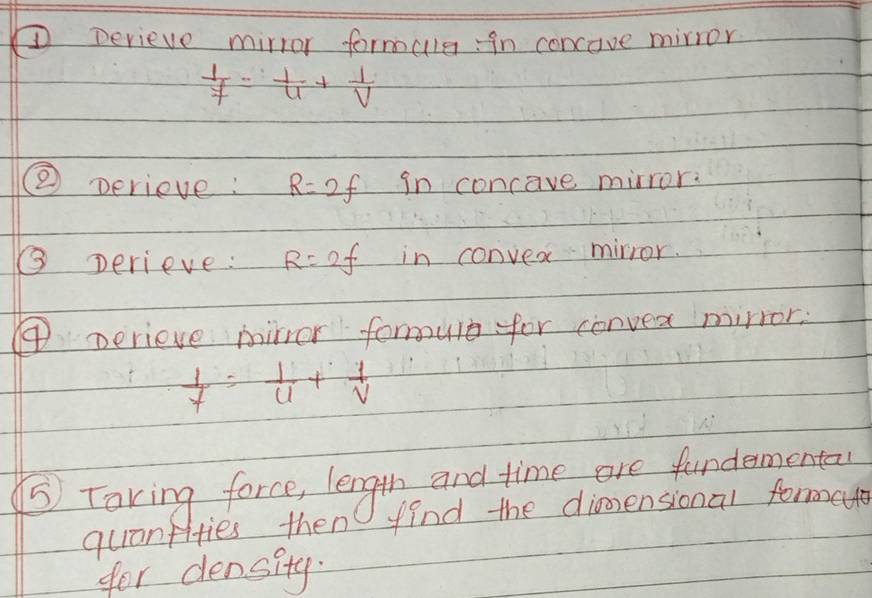 ① Derieve mirror formula in concave mirror.
1/f = 1/u + 1/v
② Derieve: R=2f in concave mirror.
③ Derieve: R=2f in convex mirror.
④ Derieve mirror formula for convex mirror.
1/f = 1/u + 1/v
⑤ Taking force, length and time are fundamental
quantities then find the dimensional formula
for density.